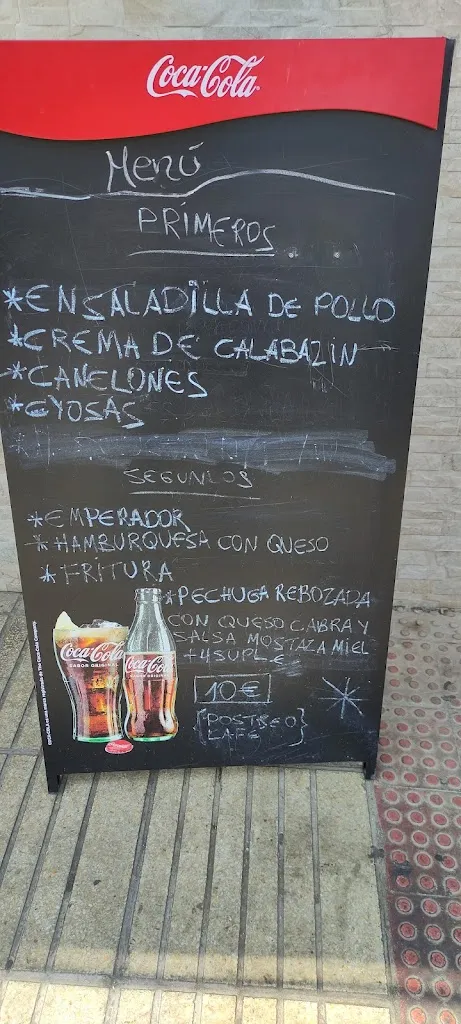 Coca-Cola
Menú
PRÍMEROS
*ENSALADILLA DE POLLO
*CREMA DE CALABAZIN
*CANELONES
*GYOSAS
SEGUNDOS
*EMPERADOR
*HAMBURQUESA CON QUESO
*FRITURA
*PECHUGA REBOZADA
CON QUESO CABRA Y
SALSA MOSTAZA MIEL
+4SUPL €
10€
{POSTRE O
CAFE}
Coca-Cola
SABOR ORIGINAL
Coca-Cola
SABOR ORIGINAL